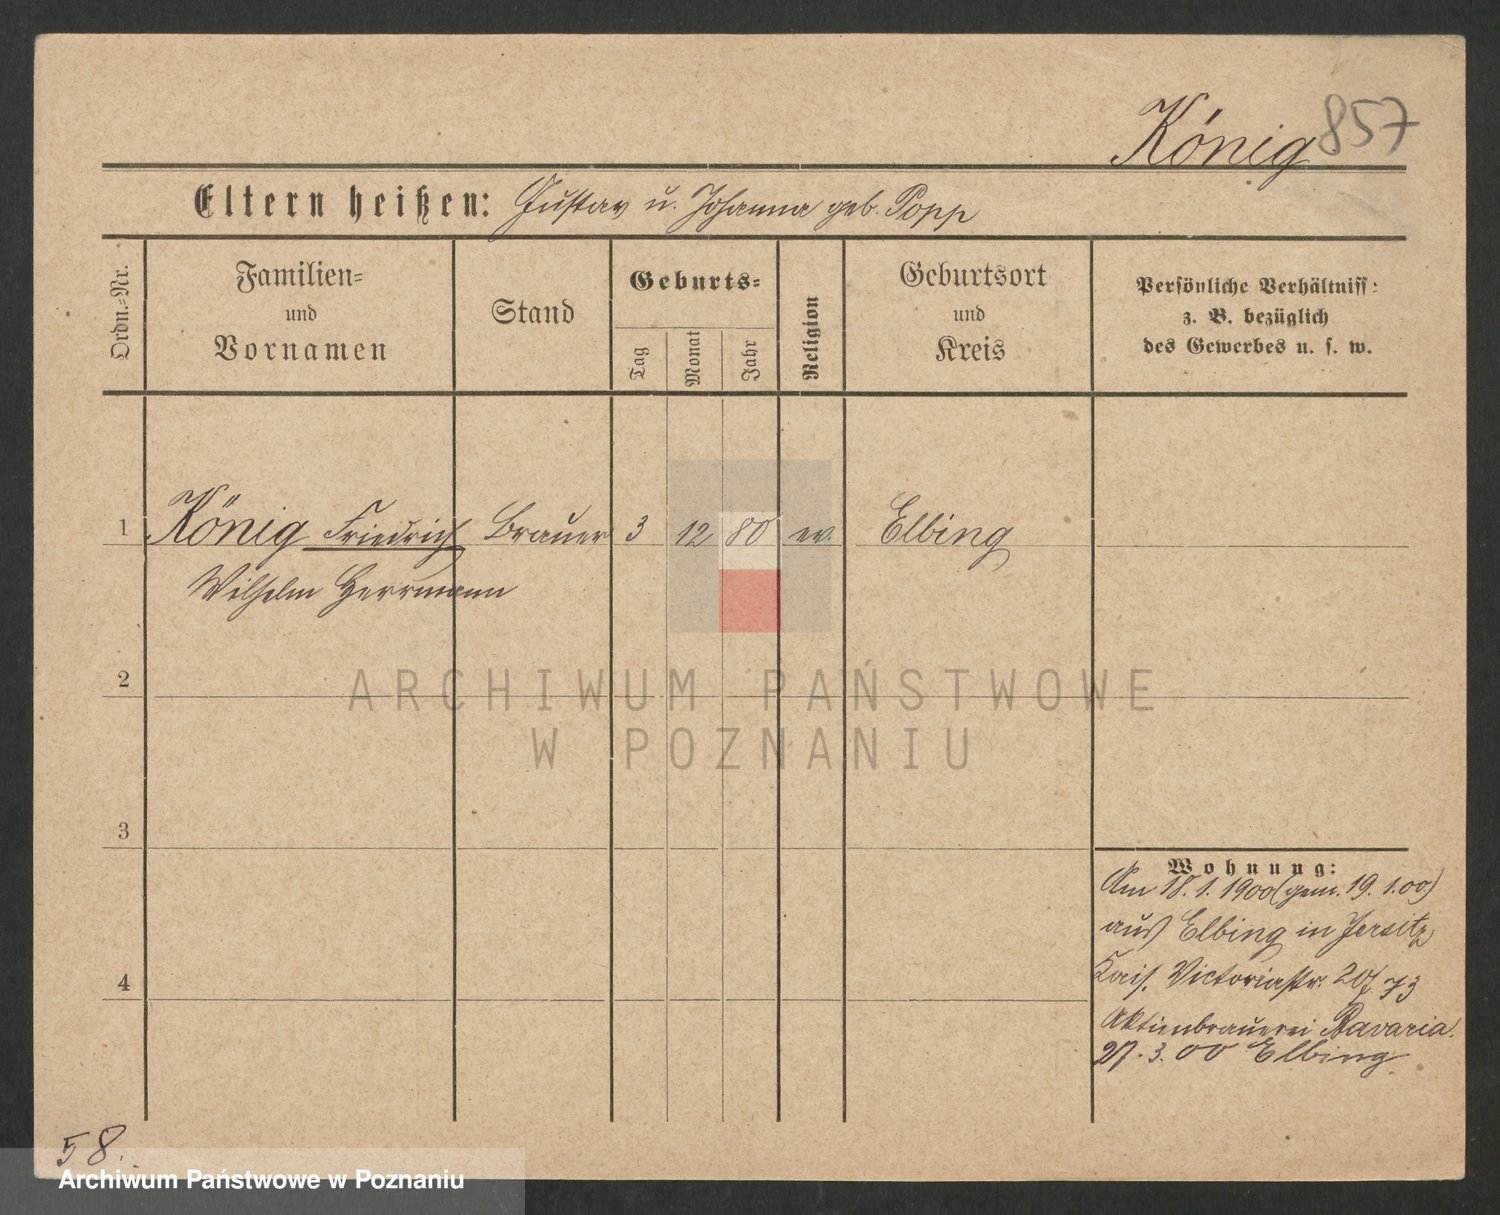 König 857
Eltern heißen: Gustav u. Johanna geb. Popp
Ordn.-Nr.
Familien-
und
Vornamen
Stand
Geburts-
Tag
Monat
Jahr
Religion
Geburtsort
und
Kreis
Persönliche Verhältniss:
z. B. bezüglich
des Gewerbes u. s. w.
1 König Friedrich Brauer 3 12 80 ev. Elbing
Wilhelm Herrmann
2
3
4
ARCHIWUM PAŃSTWOWE
W POZNANIU
Wohnung:
Am 18.1.1900 (gem. 19.1.00)
aus Elbing in Jersitz
Kais. Victoriastr. 20/73
Aktienbrauerei Bavaria.
27.3.00 Elbing.
58.
Archiwum Państwowe w Poznaniu